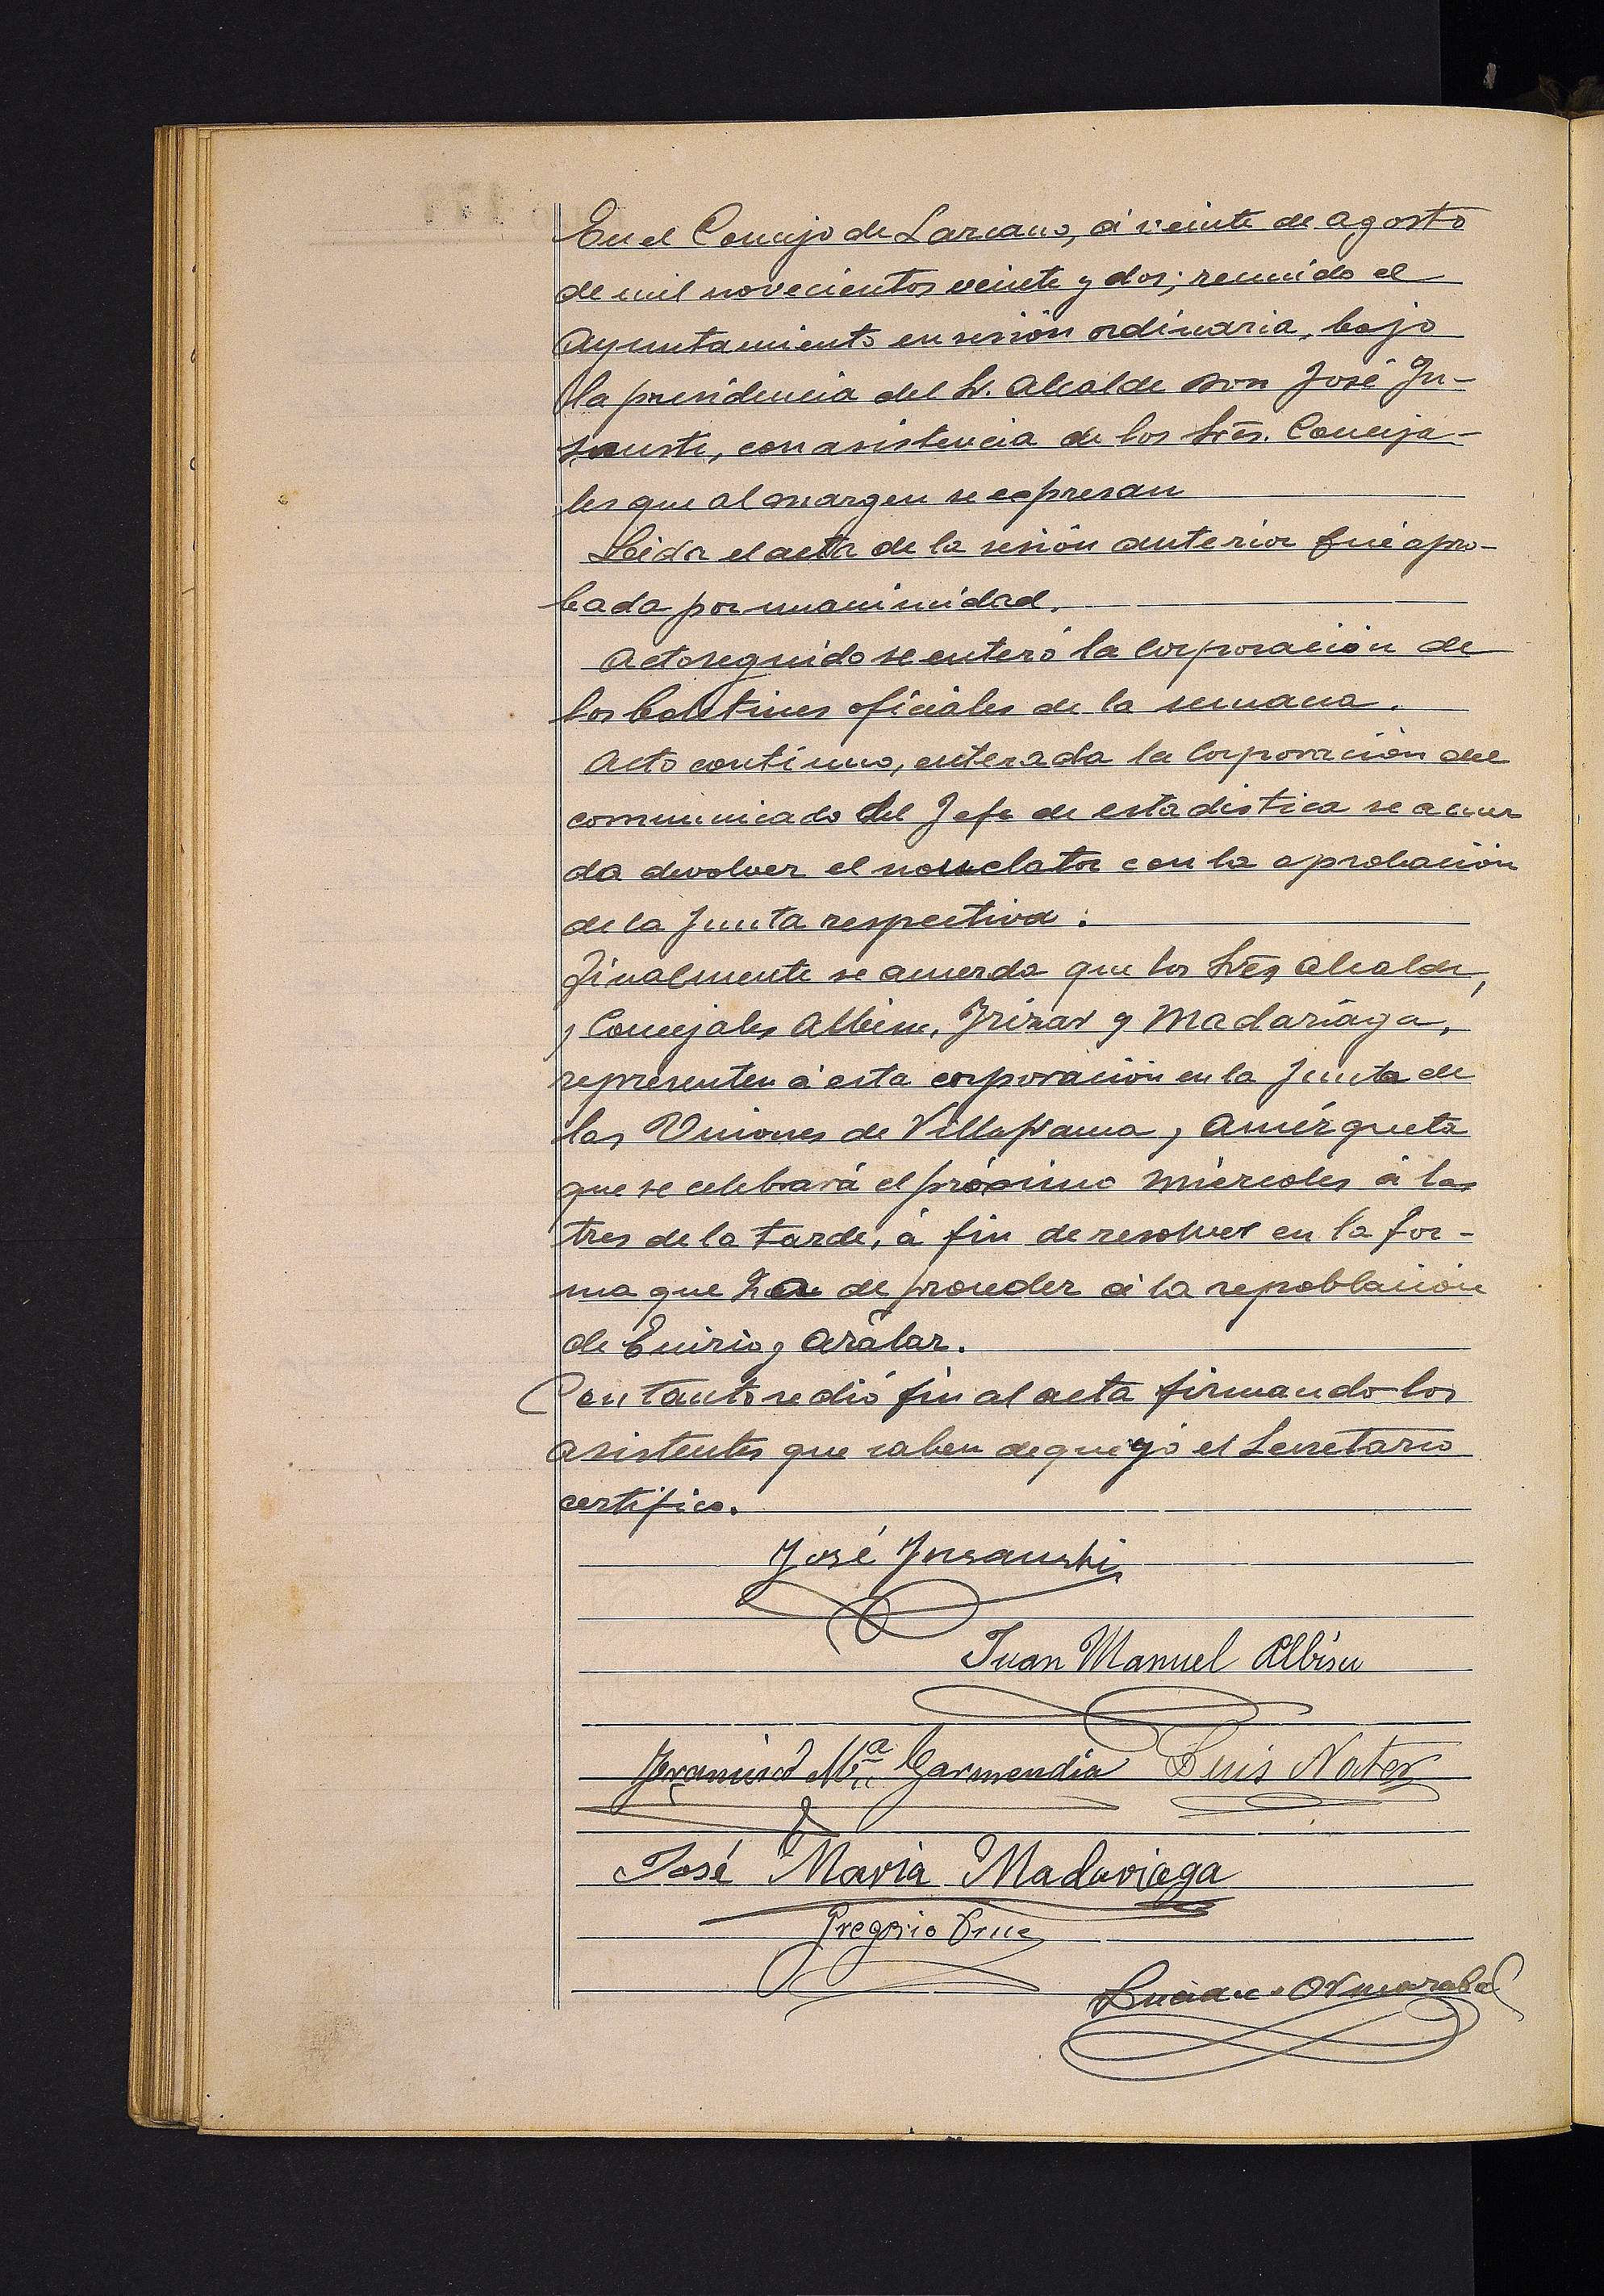 En el Concejo de Lazcano, á veinte de agosto
de mil novecientos veinte y dos; reunido el
Ayuntamiento en sesión ordinaria, bajo
la presidencia del Sr. Alcalde Don José In-
sausti, con asistencia de los Srēs. Conceja-
les que al margen se expresan
Leida el acta de la sesión anterior fué apro-
bada por unanimidad.
Acto seguido se enteró la corporación de
los boletines oficiales de la semana.
Acto continuo, enterada la Corporación del
comunicado del Jefe de estadistica se acuer
da devolver el nomenclator con la aprobación
de la Junta respectiva.
Finalmente se acuerda que los Srēs Alcalde,
y Concejales Albisu, Irizar y Madariaga,
representen á esta corporación en la Junta de
las Uniones de Villafranca y Amézqueta
que se celebrará el próximo miércoles á las
tres de la tarde, á fin de resolver en la for-
ma que ha de proceder á la repoblación
de Enirio y Aralar.
Con tanto se dió fin al acta firmando los
asistentes que saben de que yo el Secretario
certifico.
José Insausti
Juan Manuel Albisu
Mª Garmendia Luis Nater
José Maria Madariaga
Gregorio
Luciano Ormazabal